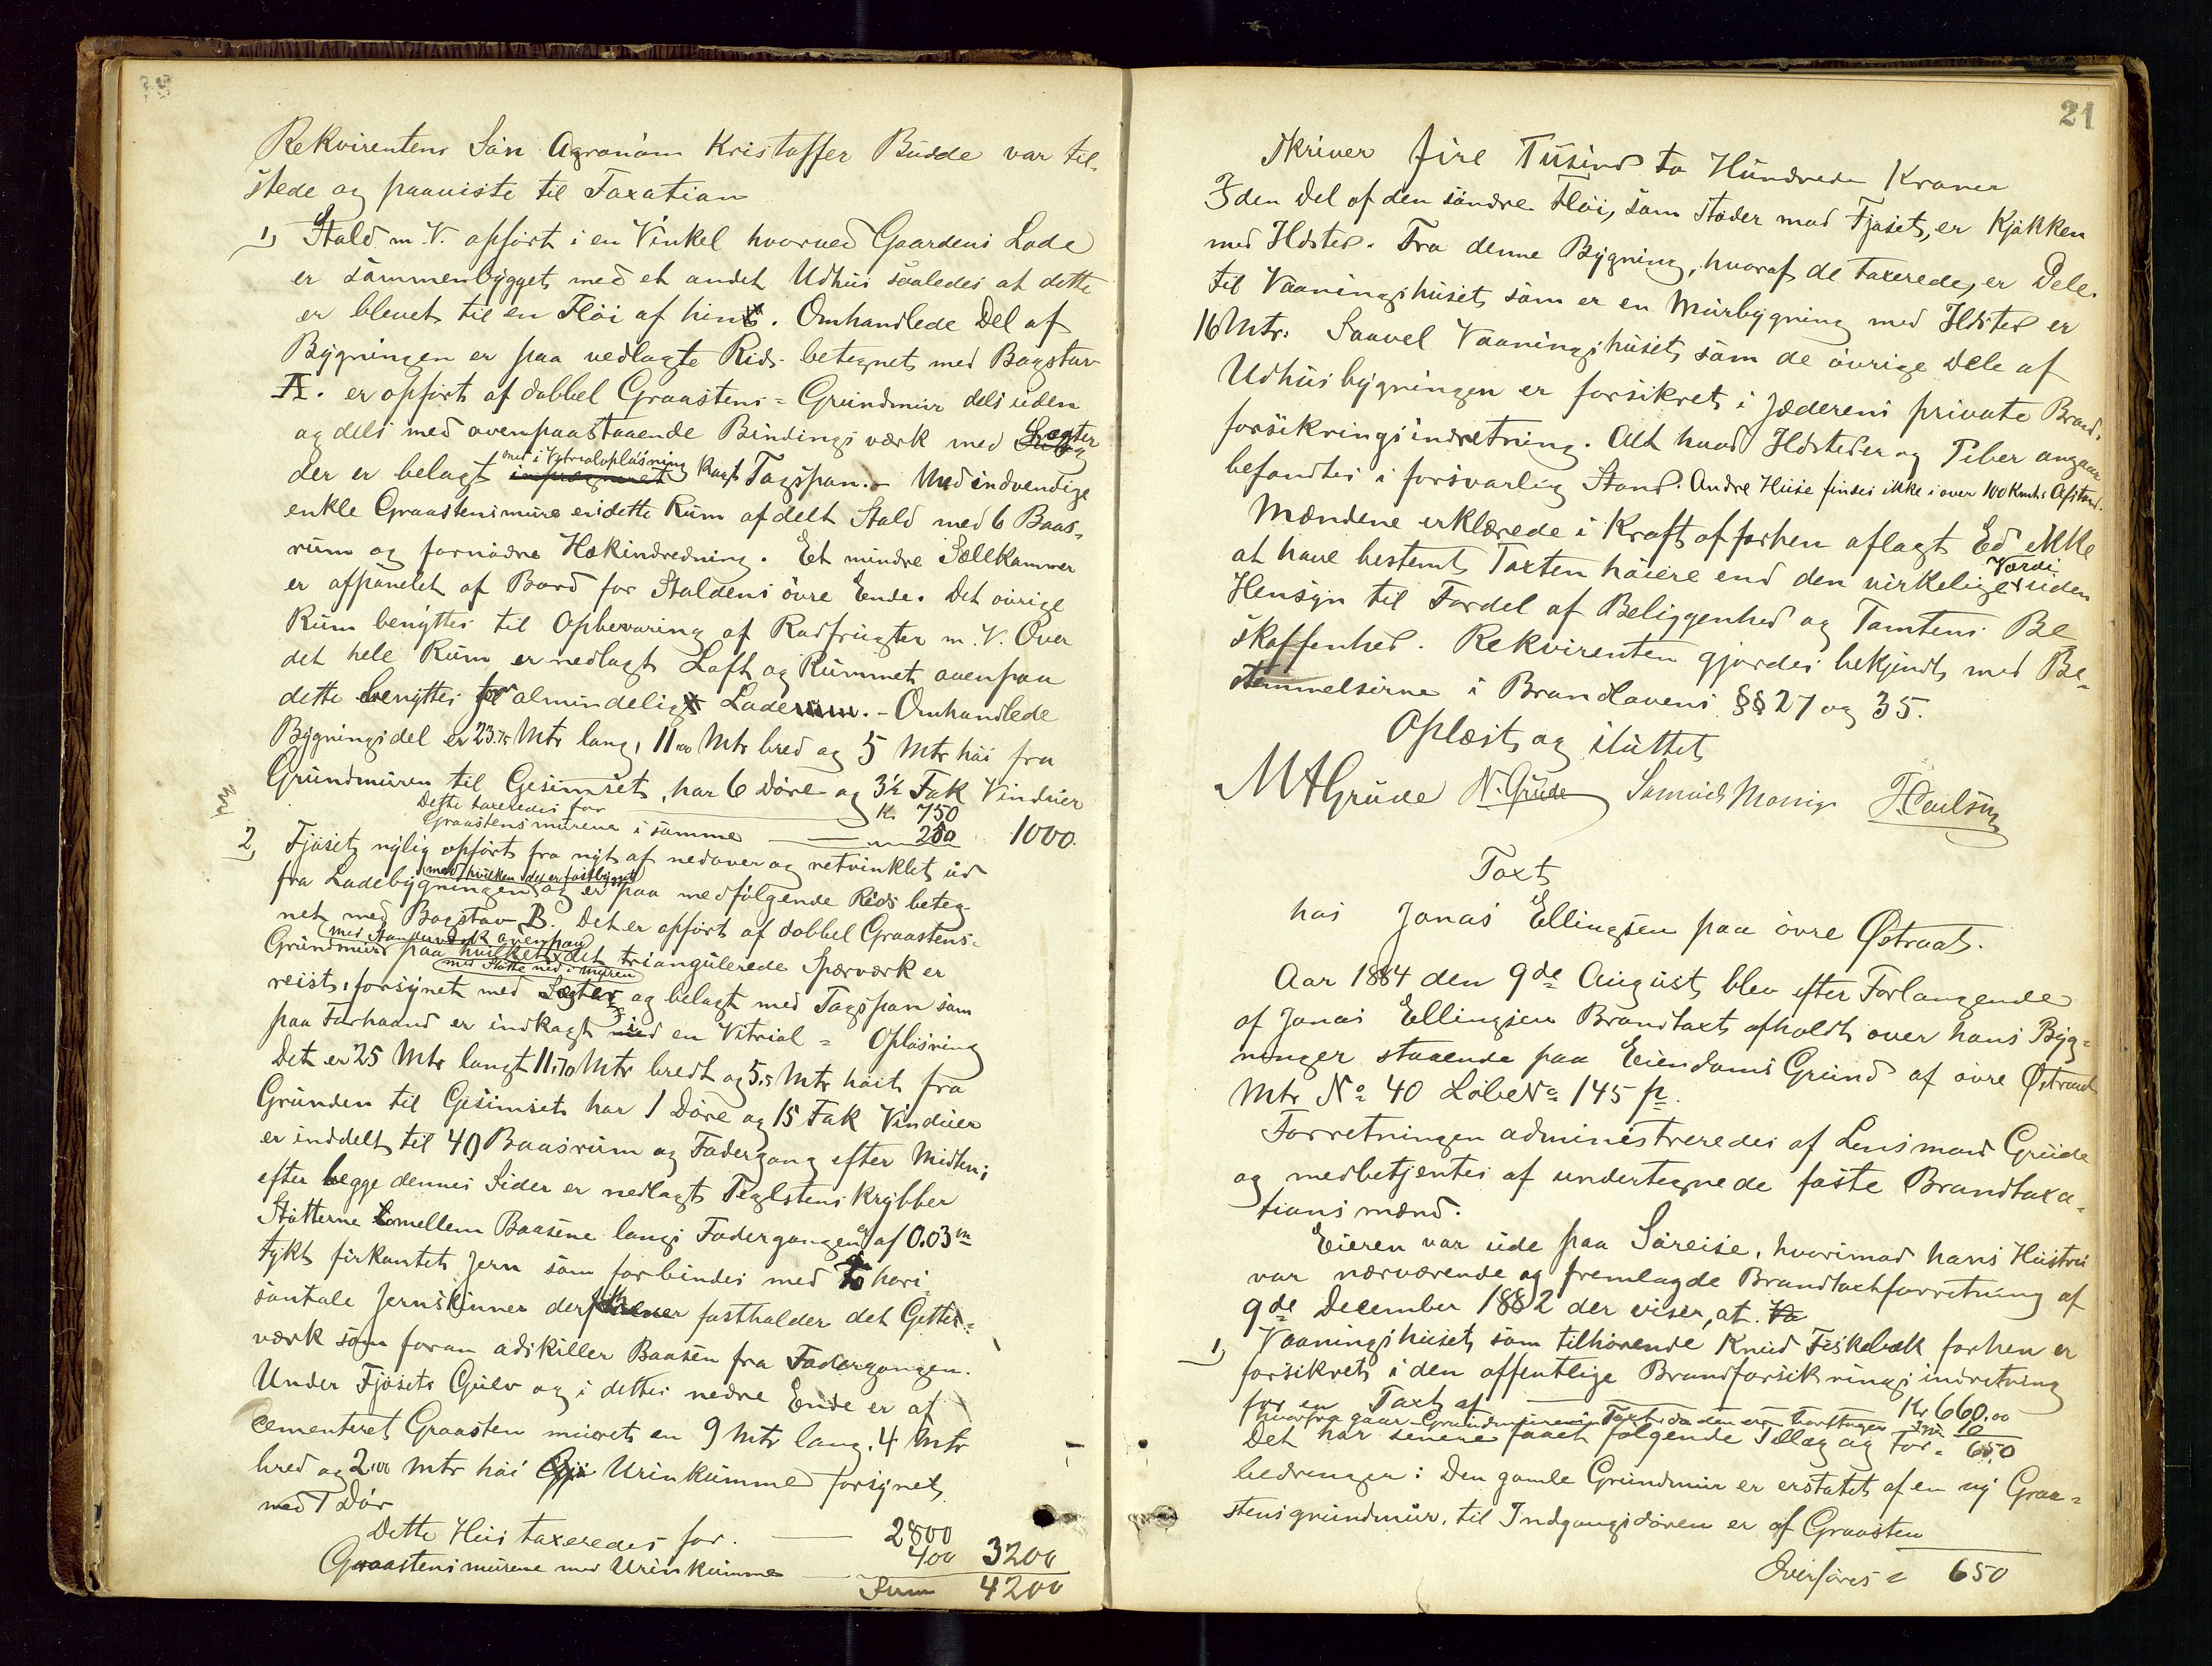 Rekvirentens Søn Agronom Kristoffer Budde var til-
stede og paaviste til Taxation
1, Stald m. V. opført i en Vinkel hvorved Gaardens Lade
er sammenbygget med et andet Udhus saaledes at dette
er blevet til en Fløi af hin. Omhandlede Del af
Bygningen er paa vedlagte Rids betegnet med Bogstav
A. er opført af dobbel Graastens-Grundmur dels uden
og dels med ovenpaastaaende Bindingsværk med Lægter
der er belagt med i Vitrialopløsning kogt Tagspan.- Med indvendige
enkle Graastensmure er i dette Rum afdelt Stald med 6 Baas-
rum og fornødne Hækindredning. Et mindre Sællkammer
er afpanelet af Bord for Staldens øvre Ende. Det øvrige
Rum benyttes til Opbevaring af Rodfrugter m. V. Over
det hele Rum er nedlagt Loft og Rummet ovenpaa
dette benyttes for almindelig Laderum.- Omhandlede
Bygningsdel er 23.75 Mtr lang, 11.00 Mtr bred og 5 Mtr høi fra
Grundmuren til Gesimset, har 6 Døre og 3½ Fak Vinduer
Dette taxeredes for Kr. 750
Graastensmurene i samme 250 1000.
2, Fjøset nylig opført fra nyt af nedover og retvinklet ud
fra Ladebygningen med hvilken det er fastbygget og er paa medfølgende Rids beteg-
net med Bogstav B. Det er opført af dobbel Graastens-
med Standerværk ovenpaa
Grundmur paa hvilket det triangulerede Spærværk er
med Støtte ned i Muren
reist, forsynet med Lægter og belagt med Tagspan som
paa Forhaand er indkogt i en Vitrial-Opløsning
Det er 25 Mtr langt 11.70 Mtr bredt og 5.5 Mtr høit fra
Grunden til Gesimset har 1 Døre og 15 Fak Vinduer
er inddelt til 40 Baasrum og Fodergang efter Midten;
efter begge dennes Sider er nedlagt Teglstens Krybber
Støtterne mellem Baasene langs Fodergangen er af 0.03 m
tykt firkantet Jern som forbindes med to hori-
sontale Jernskinner der fastholder det Gitter-
værk som foran adskiller Baasen fra Fodergangen.
Under Fjøsets Gulv og i dettes nedre Ende er af
cementeret Graasten muret en 9 Mtr lang, 4 Mtr
bred og 2.00 Mtr høi Urinkumme forsynet
med 1 Dør
Dette Hus taxeredes for. 2800
Graastensmurene med Urinkumme 400 3200
Sum 4200
21
Skriver fire Tusind to Hundrede Kroner
I den Del af den søndre Fløi, som støder mod Fjøset, er Kjøkken
med Ildsted. Fra denne Bygning, hvoraf de taxerede, er Dele.
til Vaaningshuset som er en Murbygning med Ildsted er
16 Mtr. Saavel Vaaningshuset som de øvrige Dele af
Udhusbygningen er forsikret i Jæderens private Brand-
forsikringsindretning. Alt hvad Ildsteder og Piber angaar
befandtes i forsvarlig Stand. Andre Huse findes ikke i over 100 Afstand.
Mændene erklærede i Kraft af forhen aflagt Ed ikke
at have bestemt Taxten høiere end den virkelige Værdi uden
Hensyn til Fordel af Beliggenhed og Tomtens Be
skaffenhed. Rekvirenten gjordes bekjendt med Be-
stemmelserne i Brandlovens §§ 27 og 35.
Oplæst og sluttet
M A Grude N. Grude Samuel T. Carlsen
Taxt
hos Jonas Ellingsen paa øvre Østraat.
Aar 1884 den 9de August blev efter Forlangende
af Jonas Ellingsen Brandtaxt afholdt over hans Byg-
ninger staaende paa Eiendoms Grund af øvre Østraat
Mtr No 40 Løbe No 145 p.
Forretningen administreredes af Lensmand Grude
og medbetjentes af undertegnede faste Brandtaxa-
tionsmænd.
Eieren var ude paa Søreise, hvorimod hans Hustru
var nærværende og fremlagde Brandtaxtforretning af
9de December 1882 der viser, at
1, Vaaningshuset som tilhørende Knud Fiskebæk forhen er
forsikret i den offentlige Brandforsikrings indretning
for en Taxt af Kr 660.00
hvorfra gaar Grundmurens Taxt da den er borttagen 10
Det har senere faaet følgende Tillæg og For- 650
bedringer: Den gamle Grundmur er erstatet af en ny Graa-
stensgrundmur, til Indgangsdøren er af Graasten
Overføres 650